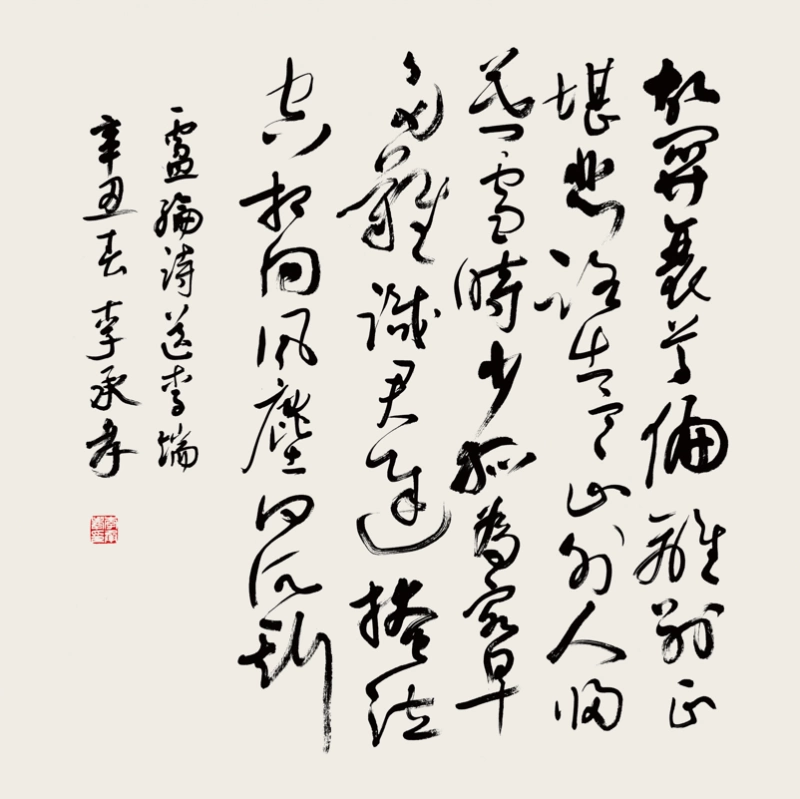 故關衰草徧離別正
堪悲路出寒雲外人歸
暮雪時少孤為客早
多難識君遲掩泣
空相向風塵何所期
盧綸詩送李端
辛丑春李承孝